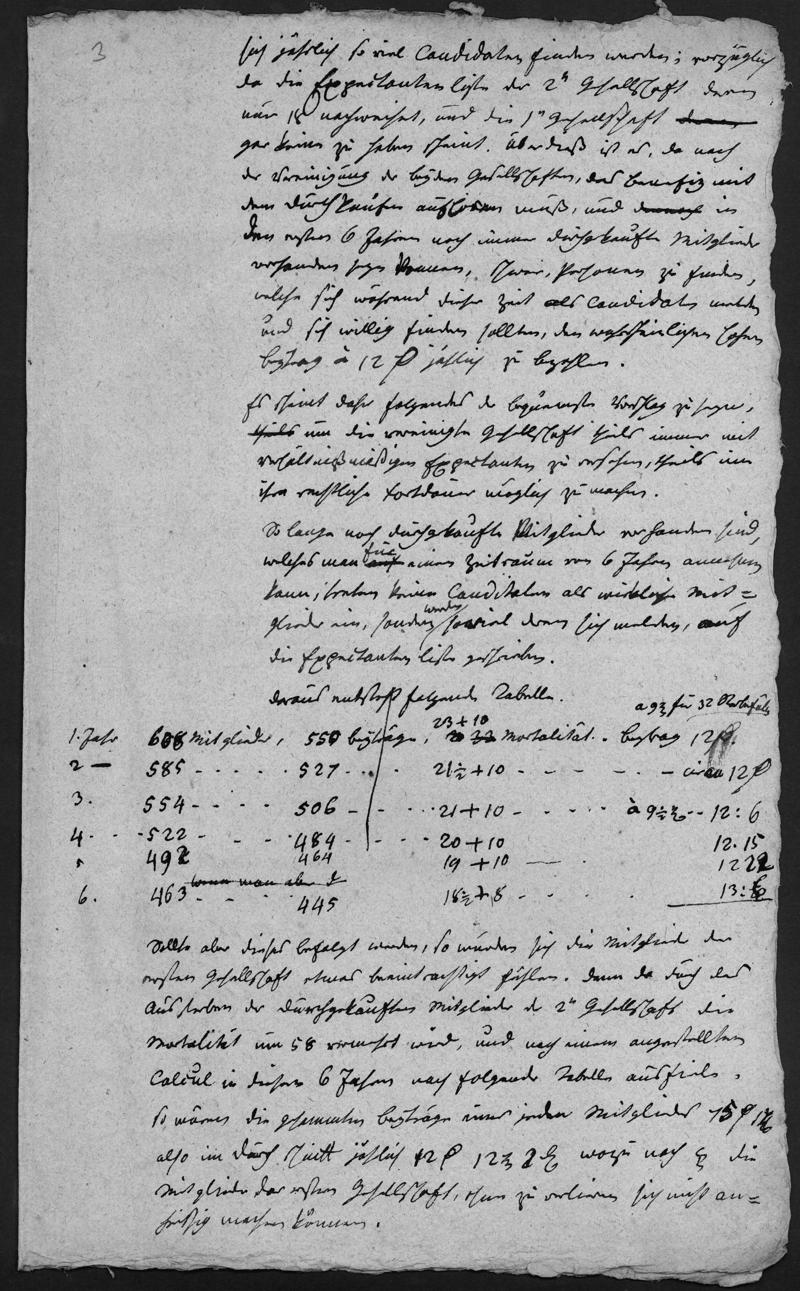 3
sich jährlich so viel Candidaten finden werden; vorzüglich
da die Expectantenliste der 2n Gesellschaft deren
nur 18 nachweiset, und die 1n Gesellschaft
gar keine zu haben scheint. Überdieß ist es, da nach
der Vereinigung der beyden Gesellschaften, das Benefiz mit
dem Durchkaufen aufhören muß, und in
den ersten 6 Jahren noch immer durchgekaufte Mitglieder
vorhanden seyn können, schwer, Personen zu finden,
welche sich während dieser Zeit als Candidaten melden
und sich willig finden sollten, den wahrscheinlichen hohen
Beytrag à 12 jährlich zu bezahlen.
Es scheint daher folgendes der bequemste Vorschlag zu seyn,
theils um die vereinigte Gesellschaft theils immer mit
verhältnißmäßigen Expectanten zu versehen, theils um
ihre rechtliche Fortdauer möglich zu machen.
So lange noch durchgekaufte Mitglieder vorhanden sind,
welches man für einen Zeitraum von 6 Jahren annehmen
kann, treten keine Candidaten als wirkliche Mit=
glieder ein, sondern werden soviel deren sich melden, auf
die Expectantenliste geschrieben.
Daraus entsteht folgende Tabelle.
a 9 für 32 Sterbefälle
1. Jahr 608 Mitglieder, 550 Beyträge, 23+10 Mortalität. Beytrag 12
2 — 585 - - - - 527 - - - 21½+10 - - - - - circa 12
3. 554 - - - - 506 - - - 21+10 - - - - à 9½ - - 12: 6
4. - - 522 - - - 484 - - - 20+10 12.15
5 492 464 19+10 — 12 22
6. 463 wenn man aber d - - 445 18½+8 - - - 13:
Sollte aber dieses befolgt werden, so würden sich die Mitglieder der
ersten Gesellschaft etwas beeinträchtigt fühlen. Denn da durch das
Aussterben der durchgekauften Mitglieder der 2n Gesellschaft die
Mortalität um 58 vermehrt wird, und nach einem angestellten
Calcul in diesen 6 Jahren nach folgender Tabelle ausfiele,
so wären die gesammten Beyträge eines jeden Mitgliedes 75
also im Durchschnitt jährlich 12 12 wozu noch die
Mitglieder der ersten Gesellschaft, ohne zu verlieren sich nicht an=
heischig machen können.